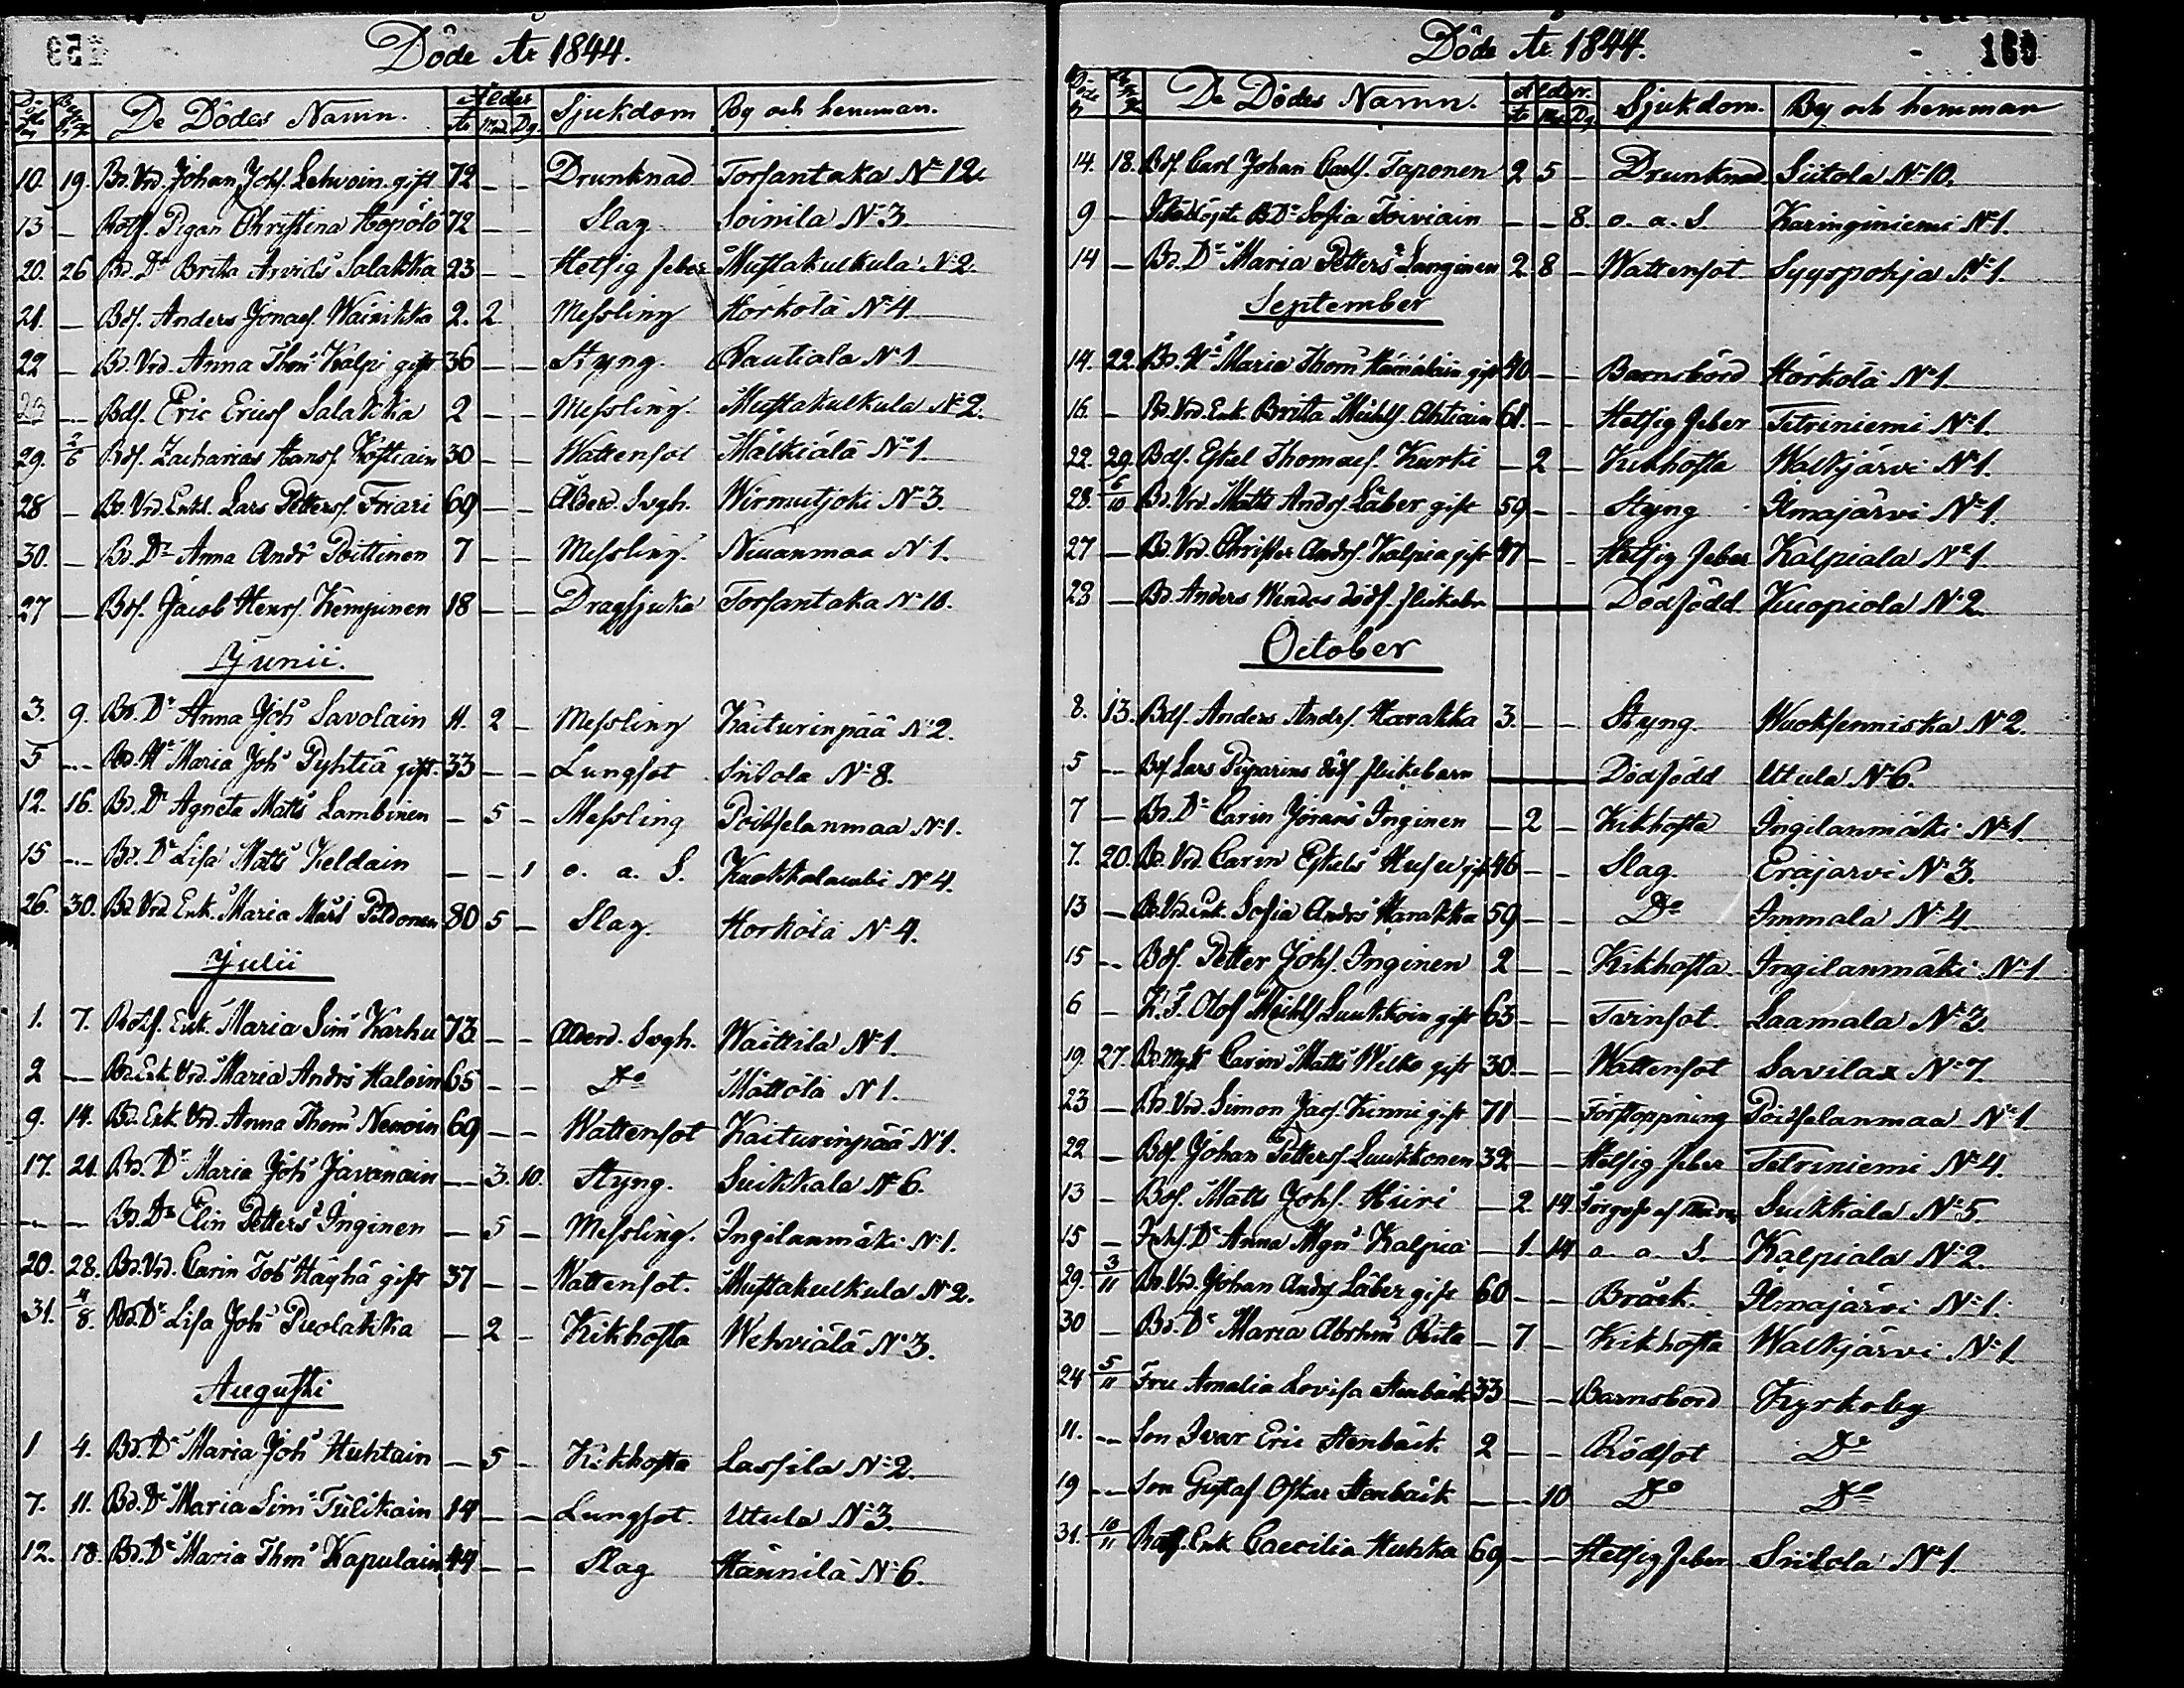 Döde År 1844.
De Dödes Namn. Ålder Sjukdom By och hemman.
År Md Dg
10. 19. Bd. Vrd. Johan Johs. Lehvoin. gift 72 - - Drunknad Torsantaka No 12
13 - Rotf. Pigan Christina Hopölö 72 - - Slag Soinila No 3.
20. 26 Bd. Dr Brita Arvids Salakka 23 - - Hetsig feber Mustakulkula No 2
21. - Bds. Anders Jonaes. Wainikka 2. 2 Messling Horkola No 4
22 - Bd. Vrd. Anna Thoms Kalpi gift 36 - - Styng. Rautiala No 1
23 - Bds. Eric Erics. Salakka 2 - - Messling. Mustakulkula No 2.
29. 2/6 Bds. Zacharias Hans. Kostiain 30 - - Wattensot Mälkiälä No 1.
28 - Bd. Vrd. Enkl. Lars Petters. Friari 69 - - Ålderd. Svgh. Wirmutjoki No 3.
30. - Bd. Dr Anna Ands Poittinen 7 - - Messling. Niuanmaa No 1.
27 - Bds. Jacob Henrs. Kemppinen 18 - - Dragsjuka Torsantaka No 10.
Junii.
3. 9. Bd. Dr Anna Johs Savolain 11. 2 - Messling Kaiturinpää No 2.
5 - Bd. Ha Maria Johs Pyhtiä gift. 33 - - Lungsot Siitola No 8.
12. 16. Bd. Dr Agneta Matts Lambinen - 5 - Messling Poitselanmaa No 1.
15 - Bd. Dr Lisa Matts Keldain - - 1 o. a. S. Kuokkalambi No 4.
26. 30. Bd Vrd Enk. Maria Mårts Poldonen 80 5 - Slag. Horkola No 4.
Julii
1. 7. Rotf. Enk. Maria Sims Karhu 73 - - Ålderd. Svgh. Waittila No 1.
2 - Bd. Enk Vrd. Maria Andrs Haloin 65 - - Do Mattola No 1.
9. 14. Bd. Enk. Vrd. Anna Thoms Nenoin 69 - - Wattensot Kaiturinpää No 1.
17. 21. Bd. Dr Maria Johs Javanain - 3. 10. Styng. Suikkala No 6.
- - Bd. Dr Elin Petters Inginen - 5 - Messling. Ingilanmäki No 1.
20. 28. Bd. Vrd. Carin Tobs Häyhä gift 37 - - Wattensot. Mustakulkula No 2.
31. 4/8. Bd. Dr Lisa Johs Puolakka - 2 - Kikhosta Wehviälä No 3.
Augusti
1 4. Bd. Dr Maria Johs Huhtain - 5 - Kikhosta Lassila No 2.
7. 11. Bd. Dr Maria Sims Tulikain 14 - - Lungsot. Utula No 3.
12. 18. Bd. Dr Maria Thms Kapulain 44 - - Slag Hannila No 6.
Döde År 1844.
169
De Dödes Namn. Ålder. Sjukdom. By och hemman
År Md Dg
14. 18. Bds. Carl Johan Carls. Taponen 2 5 - Drunknad Siitola No 10.
9 - Bd. Dr Sofia Toiviain - - 8. o. a. S. Karinginiemi No 1.
14 - Bd. Dr Maria Petters Langinen 2 8 - Wattensot Syyspohja No 1.
September
14. 22. Bd. Ha Maria Thoms Hämäläin gift 40 - - Barnsbörd Horkola No 1.
16. - Bd. Vrd. Enk. Britta Michls. Ahtiain 61. - - Hetsig feber Tetriniemi No 1.
22. 29. Bds. Eskel Thomaes. Kurki - 2 - Kikhosta Walkjärvi No 1.
28. 6/10 Bd. Vrd. Matts Andrs. Läber gift 59 - - Styng Ilmajärvi No 1.
27 - Bd. Vrd. Christer Andrs. Kalpia gift 47 - - Hetsig feber Kalpiala No 1.
28 - Bd. Anders dödf. flickebn Dödfödd. Kuopiola No 2.
October
8. 13. Bds. Anders Andrs. Harakka 3. - - Styng. Wuoksenniska No 2.
5 - Bds Lars dödf. flickebarn Dödfödd Utula No 6.
7 - Bd. Dr Carin Jörans Inginen - 2 - Kikhosta Ingilanmäki No 1.
7. 20. Bd. Vrd. Carin Eskels Husu gift 46 - - Slag. Eräjärvi No 3.
13 - Bd. Vrd. Enk. Sofia Andrs Harakka 59 - - Do Immala No 4.
15 - Bds. Petter Johs. Inginen 2 - - Kikhosta Ingilanmäki No 1.
6 - K. I. Olof Michls Luukkoin gift 63 - - Tarmsot. Laamala No 3.
19. 27. Bd. Carin Matts Wilko gift 30 - - Wattensot Savilax No 7.
23 - Bd. Vrd. Simon Jacs. Kinni gift 71 - - Förstoppning Poitselanmaa No 1
22 - Bds. Johan Petters. Luukkonen 32 - - Hetsig feber Tetriniemi No 4.
13 - Bds. Matts Johs. Hiiri - 2 14 Suikkala No 5.
15 - Dr Anna Mgns Kalpia - 1. 14 o. a. S. Kalpiala No 2.
29. 3/11 Bd. Vrd. Johan Andrs Läber gift 60 - - Bråck. Ilmajärvi No 1.
30 - Bd. Dr Maria Abrhms Rita - 7 - Kikhosta Walkjärvi No 1.
24 5/11 Fru Amalia Lovisa Stenbäck 33 - - Barnsbörd Kyrkoby
11. - Son Ivar Eric Stenbäck 2 - - Rödsot Do
19 - Son Gustaf Oskar Stenbäck - - 10 Do Do
31. 10/11 Rotf. Enk Caecilia Huhka 69 - - Hetsig feber Siitola No 1.